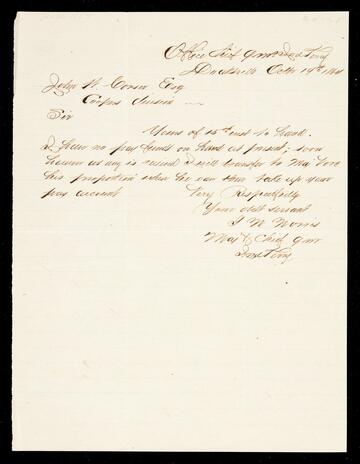 Office Chf Qm Ind Terry
Doaksville Octr 19th 1864
John W. Conser Esq
Corpus Christi
Sir
Yours of 15th inst to hand.
I have no pay funds on hand at present; soon
however as any is received I will transfer to Maj
his proportion when he can then take up your
pay account
Very Respectfully
Your obdt servant
J M Norris
Maj & Chief Qm
Ind Terry